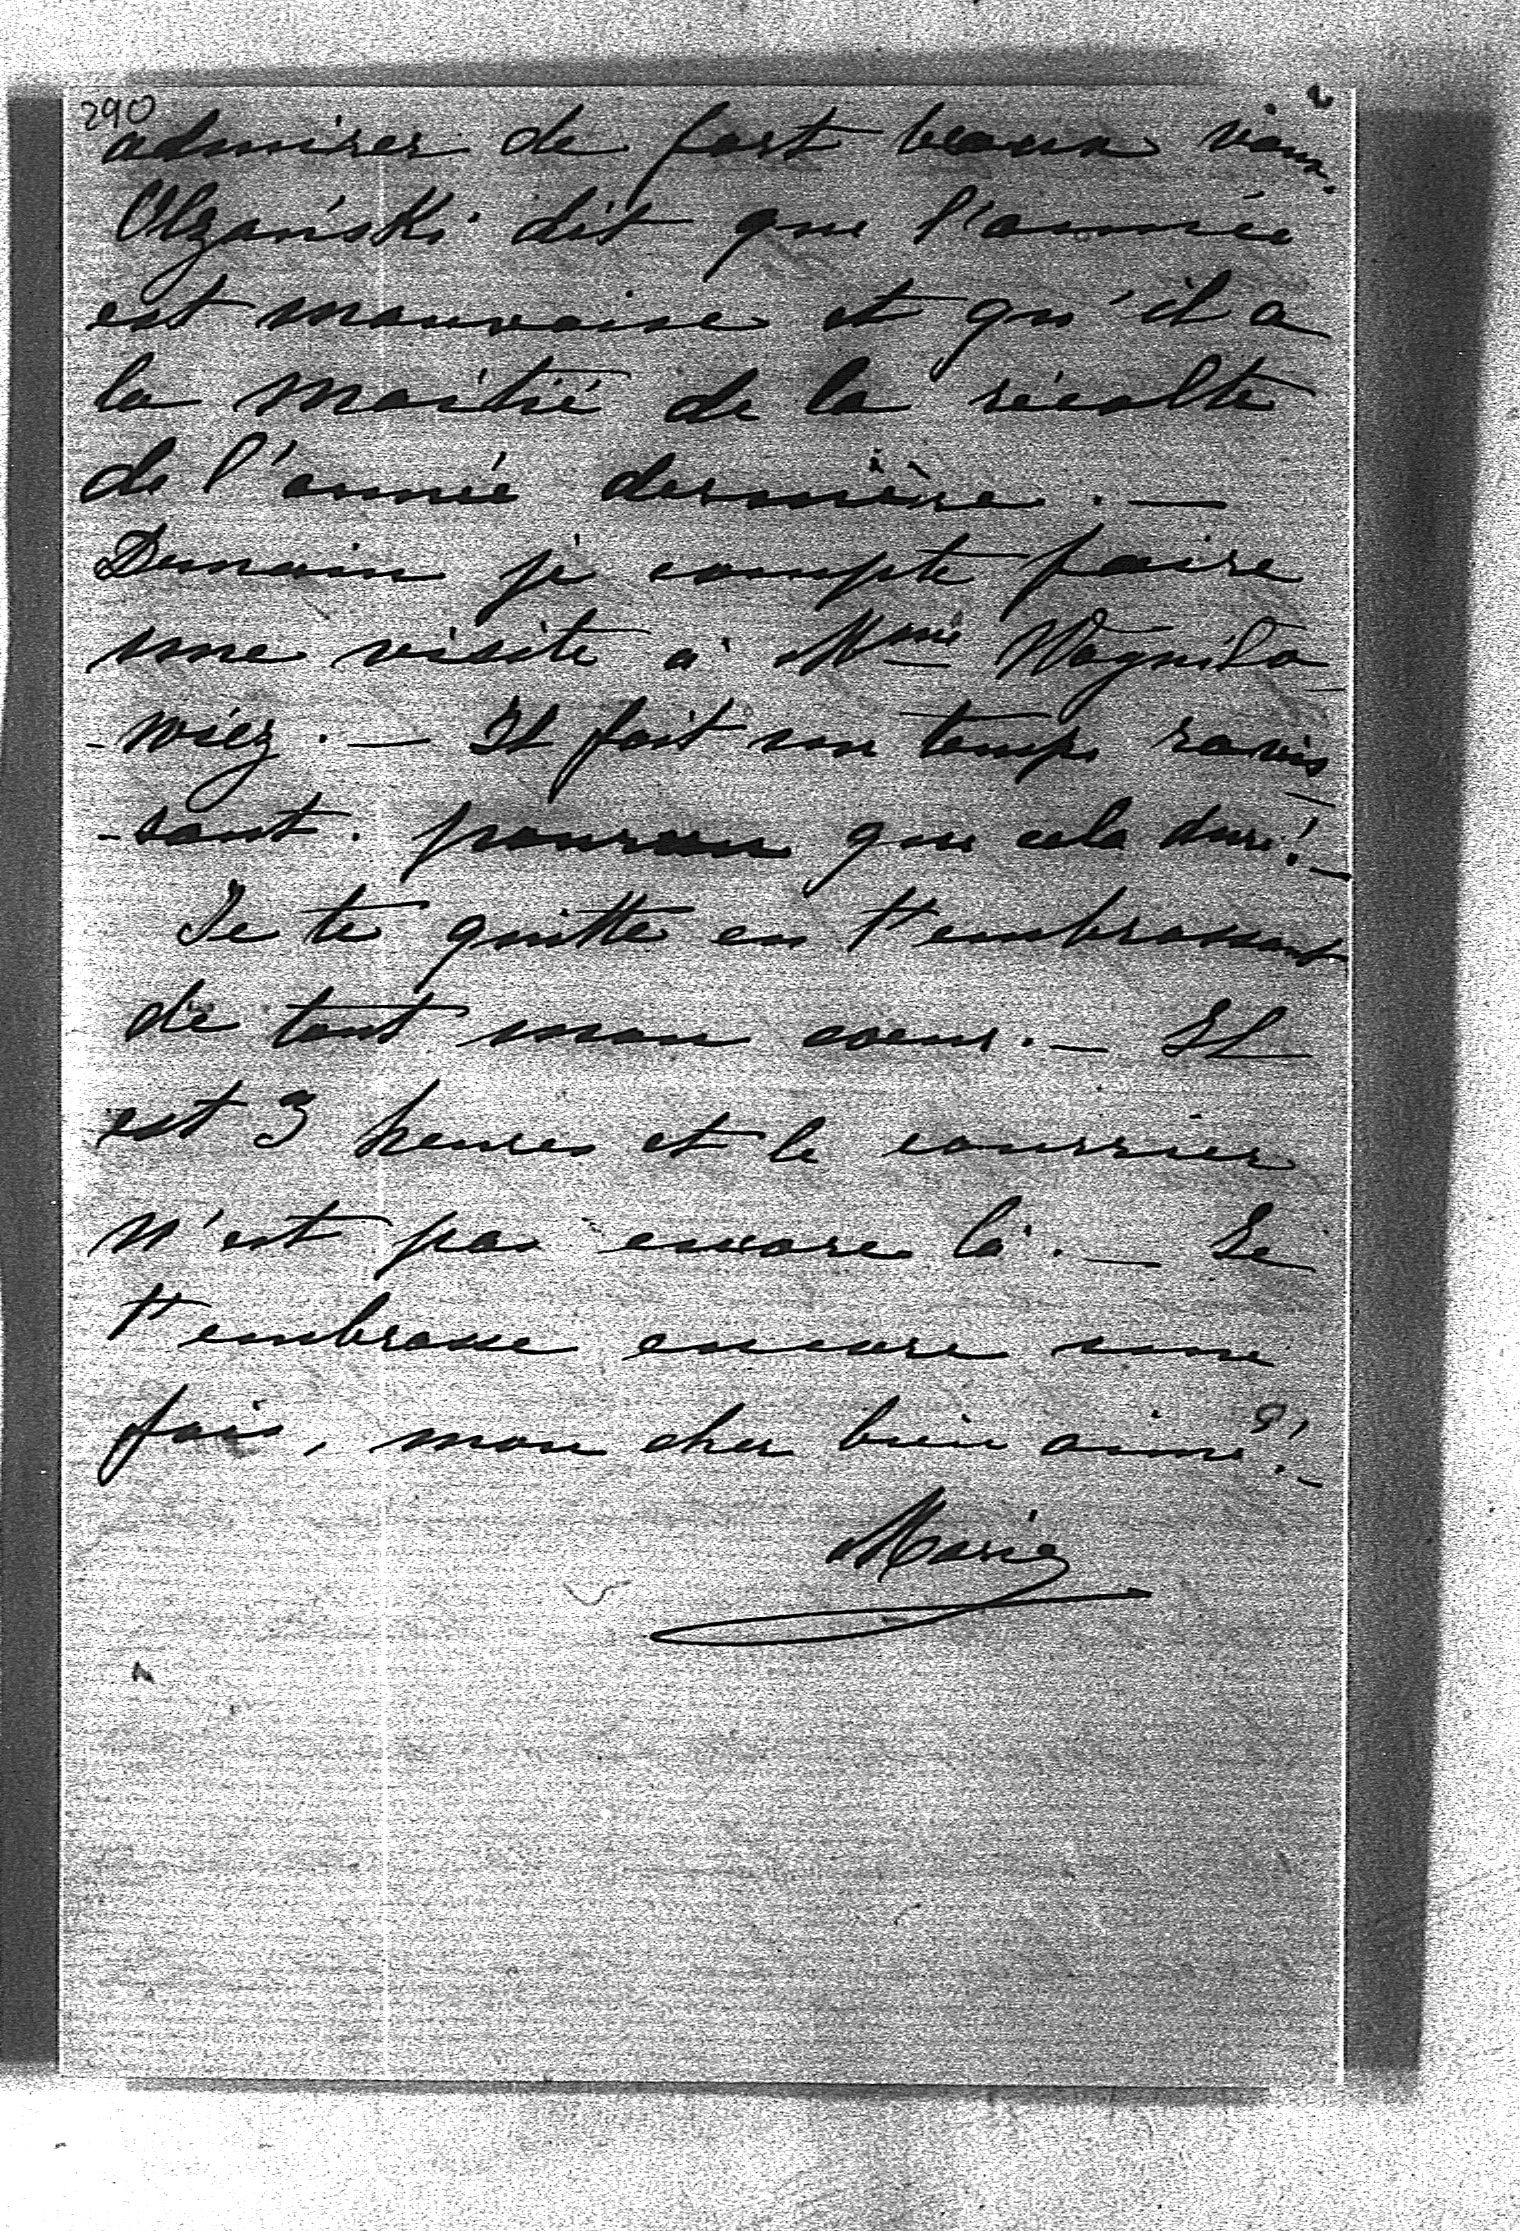 290
admirer de fort beaux
Olzański dit que l'année
est mauvaise et qu'il a
la moitié de la récolte
de l'année dernière. —
Demain je compte faire
une visite à Mme
-wicz. — Il fait un temps ravis
-sant. pourvu que cela dure! —
Je te quitte en t'embrassant
de tout mon coeur. — Il
est 3 heures et le courrier
n'est pas encore là. — Je
t'embrasse encore une
fois, mon cher bien aimé! —
Marie